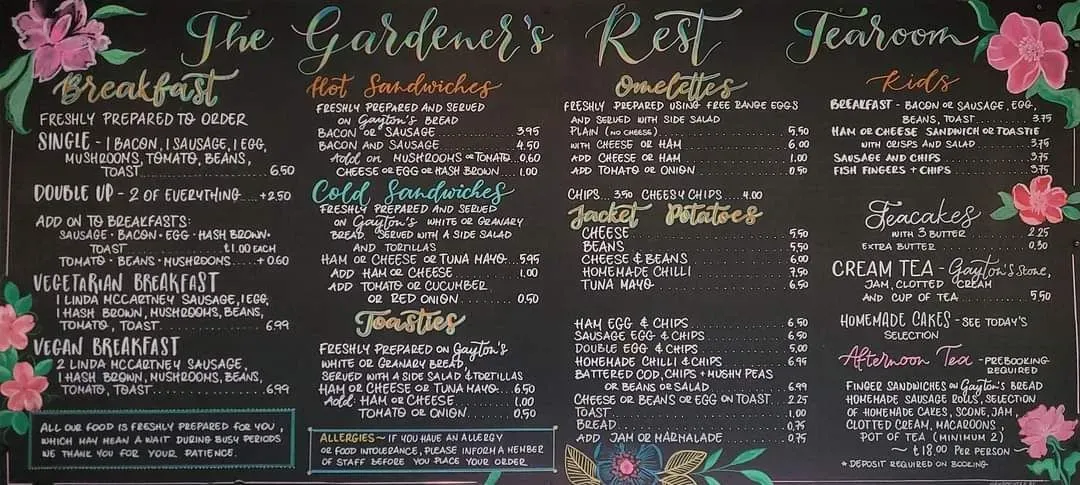 The Gardener's Rest Tearoom
Breakfast
FRESHLY PREPARED TO ORDER
SINGLE - 1 BACON, 1 SAUSAGE, 1 EGG,
MUSHROOMS, TOMATO, BEANS,
TOAST 6.50
DOUBLE UP - 2 OF EVERYTHING +2.50
ADD ON TO BREAKFASTS:
SAUSAGE · BACON · EGG · HASH BROWN ·
TOAST £1.00 EACH
TOMATO · BEANS · MUSHROOMS +0.60
VEGETARIAN BREAKFAST
1 LINDA MCCARTNEY SAUSAGE, 1 EGG,
1 HASH BROWN, MUSHROOMS, BEANS,
TOMATO, TOAST 6.99
VEGAN BREAKFAST
2 LINDA MCCARTNEY SAUSAGE,
1 HASH BROWN, MUSHROOMS, BEANS,
TOMATO, TOAST 6.99
ALL OUR FOOD IS FRESHLY PREPARED FOR YOU,
WHICH MAY MEAN A WAIT DURING BUSY PERIODS
WE THANK YOU FOR YOUR PATIENCE.
Hot Sandwiches
FRESHLY PREPARED AND SERVED
ON Gayton's BREAD
BACON OR SAUSAGE 3.95
BACON AND SAUSAGE 4.50
Add on MUSHROOMS OR TOMATO 0.60
CHEESE OR EGG OR HASH BROWN 1.00
Cold Sandwiches
FRESHLY PREPARED AND SERVED
ON Gayton's WHITE OR GRANARY
BREAD SERVED WITH A SIDE SALAD
AND TORTILLAS
HAM OR CHEESE OR TUNA MAYO 5.95
ADD HAM OR CHEESE 1.00
ADD TOMATO OR CUCUMBER
OR RED ONION 0.50
Toasties
FRESHLY PREPARED ON Gayton's
WHITE OR GRANARY BREAD,
SERVED WITH A SIDE SALAD & TORTILLAS
HAM OR CHEESE OR TUNA MAYO 6.50
Add: HAM OR CHEESE 1.00
TOMATO OR ONION 0.50
ALLERGIES ~ IF YOU HAVE AN ALLERGY
OR FOOD INTOLERANCE, PLEASE INFORM A MEMBER
OF STAFF BEFORE YOU PLACE YOUR ORDER
Omelettes
FRESHLY PREPARED USING FREE RANGE EGGS
AND SERVED WITH SIDE SALAD
PLAIN (NO CHEESE) 5.50
WITH CHEESE OR HAM 6.00
ADD CHEESE OR HAM 1.00
ADD TOMATO OR ONION 0.50
CHIPS 3.50 CHEESY CHIPS 4.00
Jacket Potatoes
CHEESE 5.50
BEANS 5.50
CHEESE & BEANS 6.00
HOMEMADE CHILLI 7.50
TUNA MAYO 6.50
HAM EGG & CHIPS 6.50
SAUSAGE EGG & CHIPS 6.50
DOUBLE EGG & CHIPS 5.00
HOMEMADE CHILLI & CHIPS 6.99
BATTERED COD, CHIPS + MUSHY PEAS
OR BEANS OR SALAD 6.99
CHEESE OR BEANS OR EGG ON TOAST 2.25
TOAST 1.00
BREAD 0.75
ADD JAM OR MARMALADE 0.75
Kids
BREAKFAST - BACON OR SAUSAGE, EGG,
BEANS, TOAST 3.75
HAM OR CHEESE SANDWICH OR TOASTIE
WITH CRISPS AND SALAD 3.75
SAUSAGE AND CHIPS 3.75
FISH FINGERS + CHIPS 3.75
Teacakes
WITH 3 BUTTER 2.25
EXTRA BUTTER 0.30
CREAM TEA - Gayton's Scone,
JAM, CLOTTED CREAM
AND CUP OF TEA 5.50
HOMEMADE CAKES - SEE TODAY'S
SELECTION
Afternoon Tea - PREBOOKING
REQUIRED
FINGER SANDWICHES ON Gayton's BREAD
HOMEMADE SAUSAGE ROLLS, SELECTION
OF HOMEMADE CAKES, SCONE, JAM,
CLOTTED CREAM, MACAROONS,
POT OF TEA (MINIMUM 2)
~ £18.00 PER PERSON ~
* DEPOSIT REQUIRED ON BOOKING